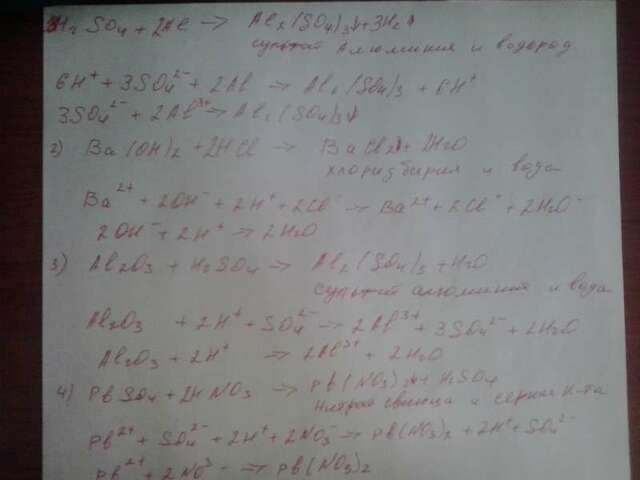 H₂SO₄ + 2Al → Al₂(SO₄)₃↓ + 3H₂↑
сульфат алюминия и водород
6H⁺ + 3SO₄²⁻ + 2Al → Al₂(SO₄)₃ + 6H⁺
3SO₄²⁻ + 2Al³⁺ → Al₂(SO₄)₃↓
2) Ba(OH)₂ + 2HCl → BaCl₂↓ + 2H₂O
хлорид бария и вода
Ba²⁺ + 2OH⁻ + 2H⁺ + 2Cl⁻ → Ba²⁺ + 2Cl⁻ + 2H₂O
2OH⁻ + 2H⁺ → 2H₂O
3) Al₂O₃ + H₂SO₄ → Al₂(SO₄)₃ + H₂O
сульфат алюминия и вода
Al₂O₃ + 2H⁺ + SO₄²⁻ → 2Al³⁺ + 3SO₄²⁻ + 2H₂O
Al₂O₃ + 2H⁺ → 2Al³⁺ + 2H₂O
4) PbSO₄ + 2HNO₃ → Pb(NO₃)₂↓ + H₂SO₄
Нитрат свинца и серная к-та
Pb²⁺ + SO₄²⁻ + 2H⁺ + 2NO₃⁻ → Pb(NO₃)₂ + 2H⁺ + SO₄²⁻
Pb²⁺ + 2NO₃⁻ → Pb(NO₃)₂